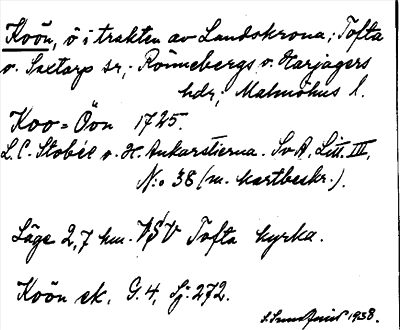 Koön, ö i trakten av Landskrona; Tofta
o. Saxtorp sr; Rönnebergs o. Harjagers
hdr; Malmöhus l.
Koo=Öön 1725.
L. C. Stobée o. H. Ankarstierna. Sv A, Litt. III,
N:o 38 (m. kartbeskr.).
Läge 2,7 km. VSV Tofta kyrka.
Koön ek. G. 4, Sj. 272.
1938.